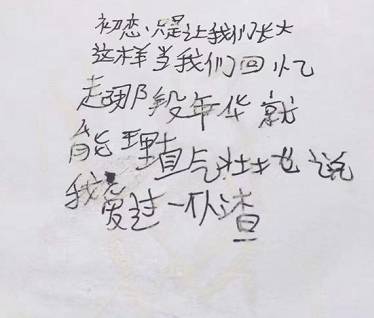 初恋,只是让我们长大
这样当我们回忆
起那段年华就
能理直气壮地说
我爱过一个人渣